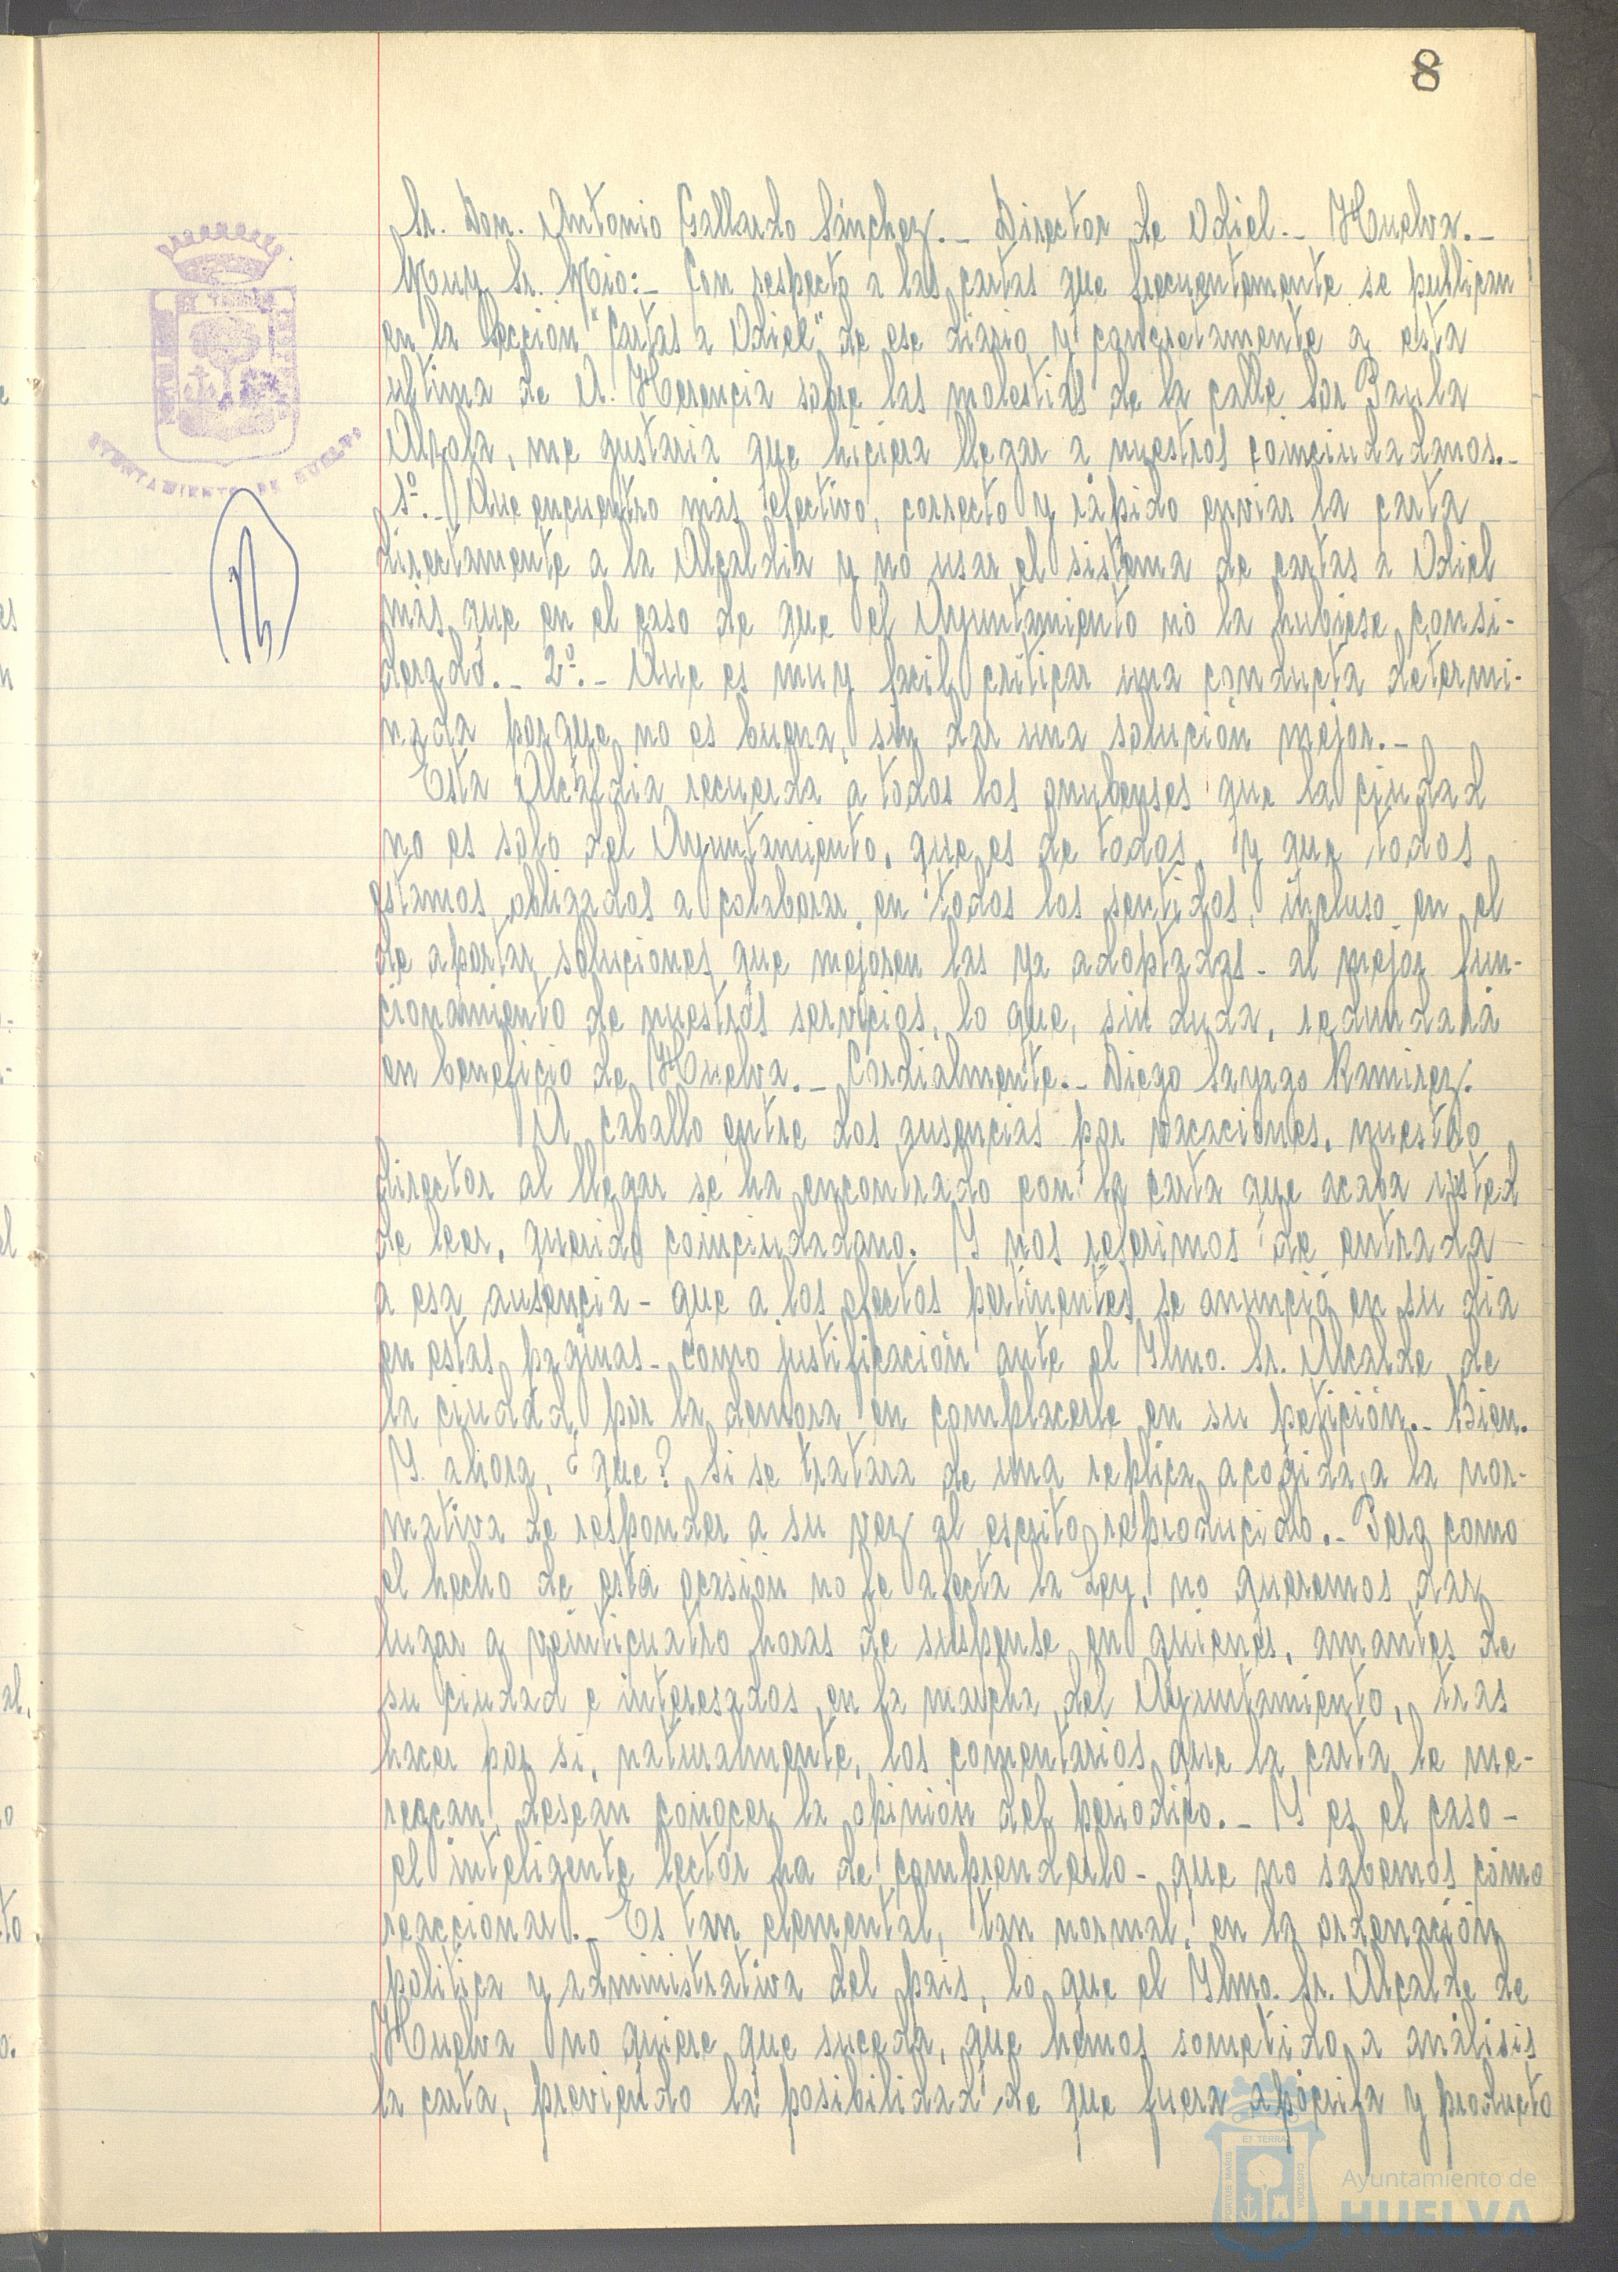 8
Sr. Don. Antonio Gallardo Sánchez.- Director de Odiel.- Huelva.-
Muy Sr. Mio:- Con respecto a las cartas que frecuentemente se publican
en la Sección "Cartas a Odiel" de ese diario y concretamente a esta
ultima de A. Herencia sobre las molestias de la calle Sor Paula
Alzola, me gustaria que hiciera llegar a nuestros conciudadanos.-
1º.- Que encuentro más efectivo, correcto y rápido enviar la carta
directamente a la Alcaldia y no usar el sistema de cartas a Odiel
más que en el caso de que el Ayuntamiento no la hubiese consi-
derado.- 2º.- Que es muy facil criticar una conducta determi-
nada porque no es buena, sin dar una solución mejor.-
Esta Alcaldia recuerda a todos los onubenses que la ciudad
no es solo del Ayuntamiento, que es de todos, y que todos
estamos obligados a colaborar en todos los sentidos, incluso en el
de aportar soluciones que mejoren las ya adoptadas- al mejor fun-
cionamiento de nuestros servicios, lo que, sin duda, redundará
en beneficio de Huelva.- Cordialmente.- Diego Sayago Ramirez.
A caballo entre dos ausencias por vacaciones, nuestro
director al llegar se ha encontrado con la carta que acaba usted
de leer, querido conciudadano. Y nos referimos de entrada
a esa ausencia- que a los efectos pertinentes se anunció en su dia
en estas paginas- como justificación ante el Ylmo. Sr. Alcalde de
la ciudad por la demora en complacerle en su petición.- Bien.
Y ahora, ¿que? Si se tratara de una replica acogida a la nor-
mativa de responder a su vez al escrito reproducido.- Pero como
el hecho de esta ocasión no le afecta la Ley, no queremos dar
lugar a veinticuatro horas de suspense en quienes, amantes de
su ciudad e interesados en la marcha del Ayuntamiento, tras
hacer por si, naturalmente, los comentarios que la carta le me-
rezcan, desean conocer la opinión del periodico.- Y es el caso-
el inteligente lector ha de comprenderlo- que no sabemos cómo
reaccionar.- Es tan elemental, tan normal, en la ordenación
politica y administrativa del pais, lo que el Ylmo. Sr. Alcalde de
Huelva no quiere que suceda, que hemos sometido a análisis
la carta, previendo la posibilidad de que fuera apócrifa y producto
AYUNTAMIENTO DE HUELVA
PORTUS MARIS
ET TERRAE
CUSTODIA
Ayuntamiento de
HUELVA